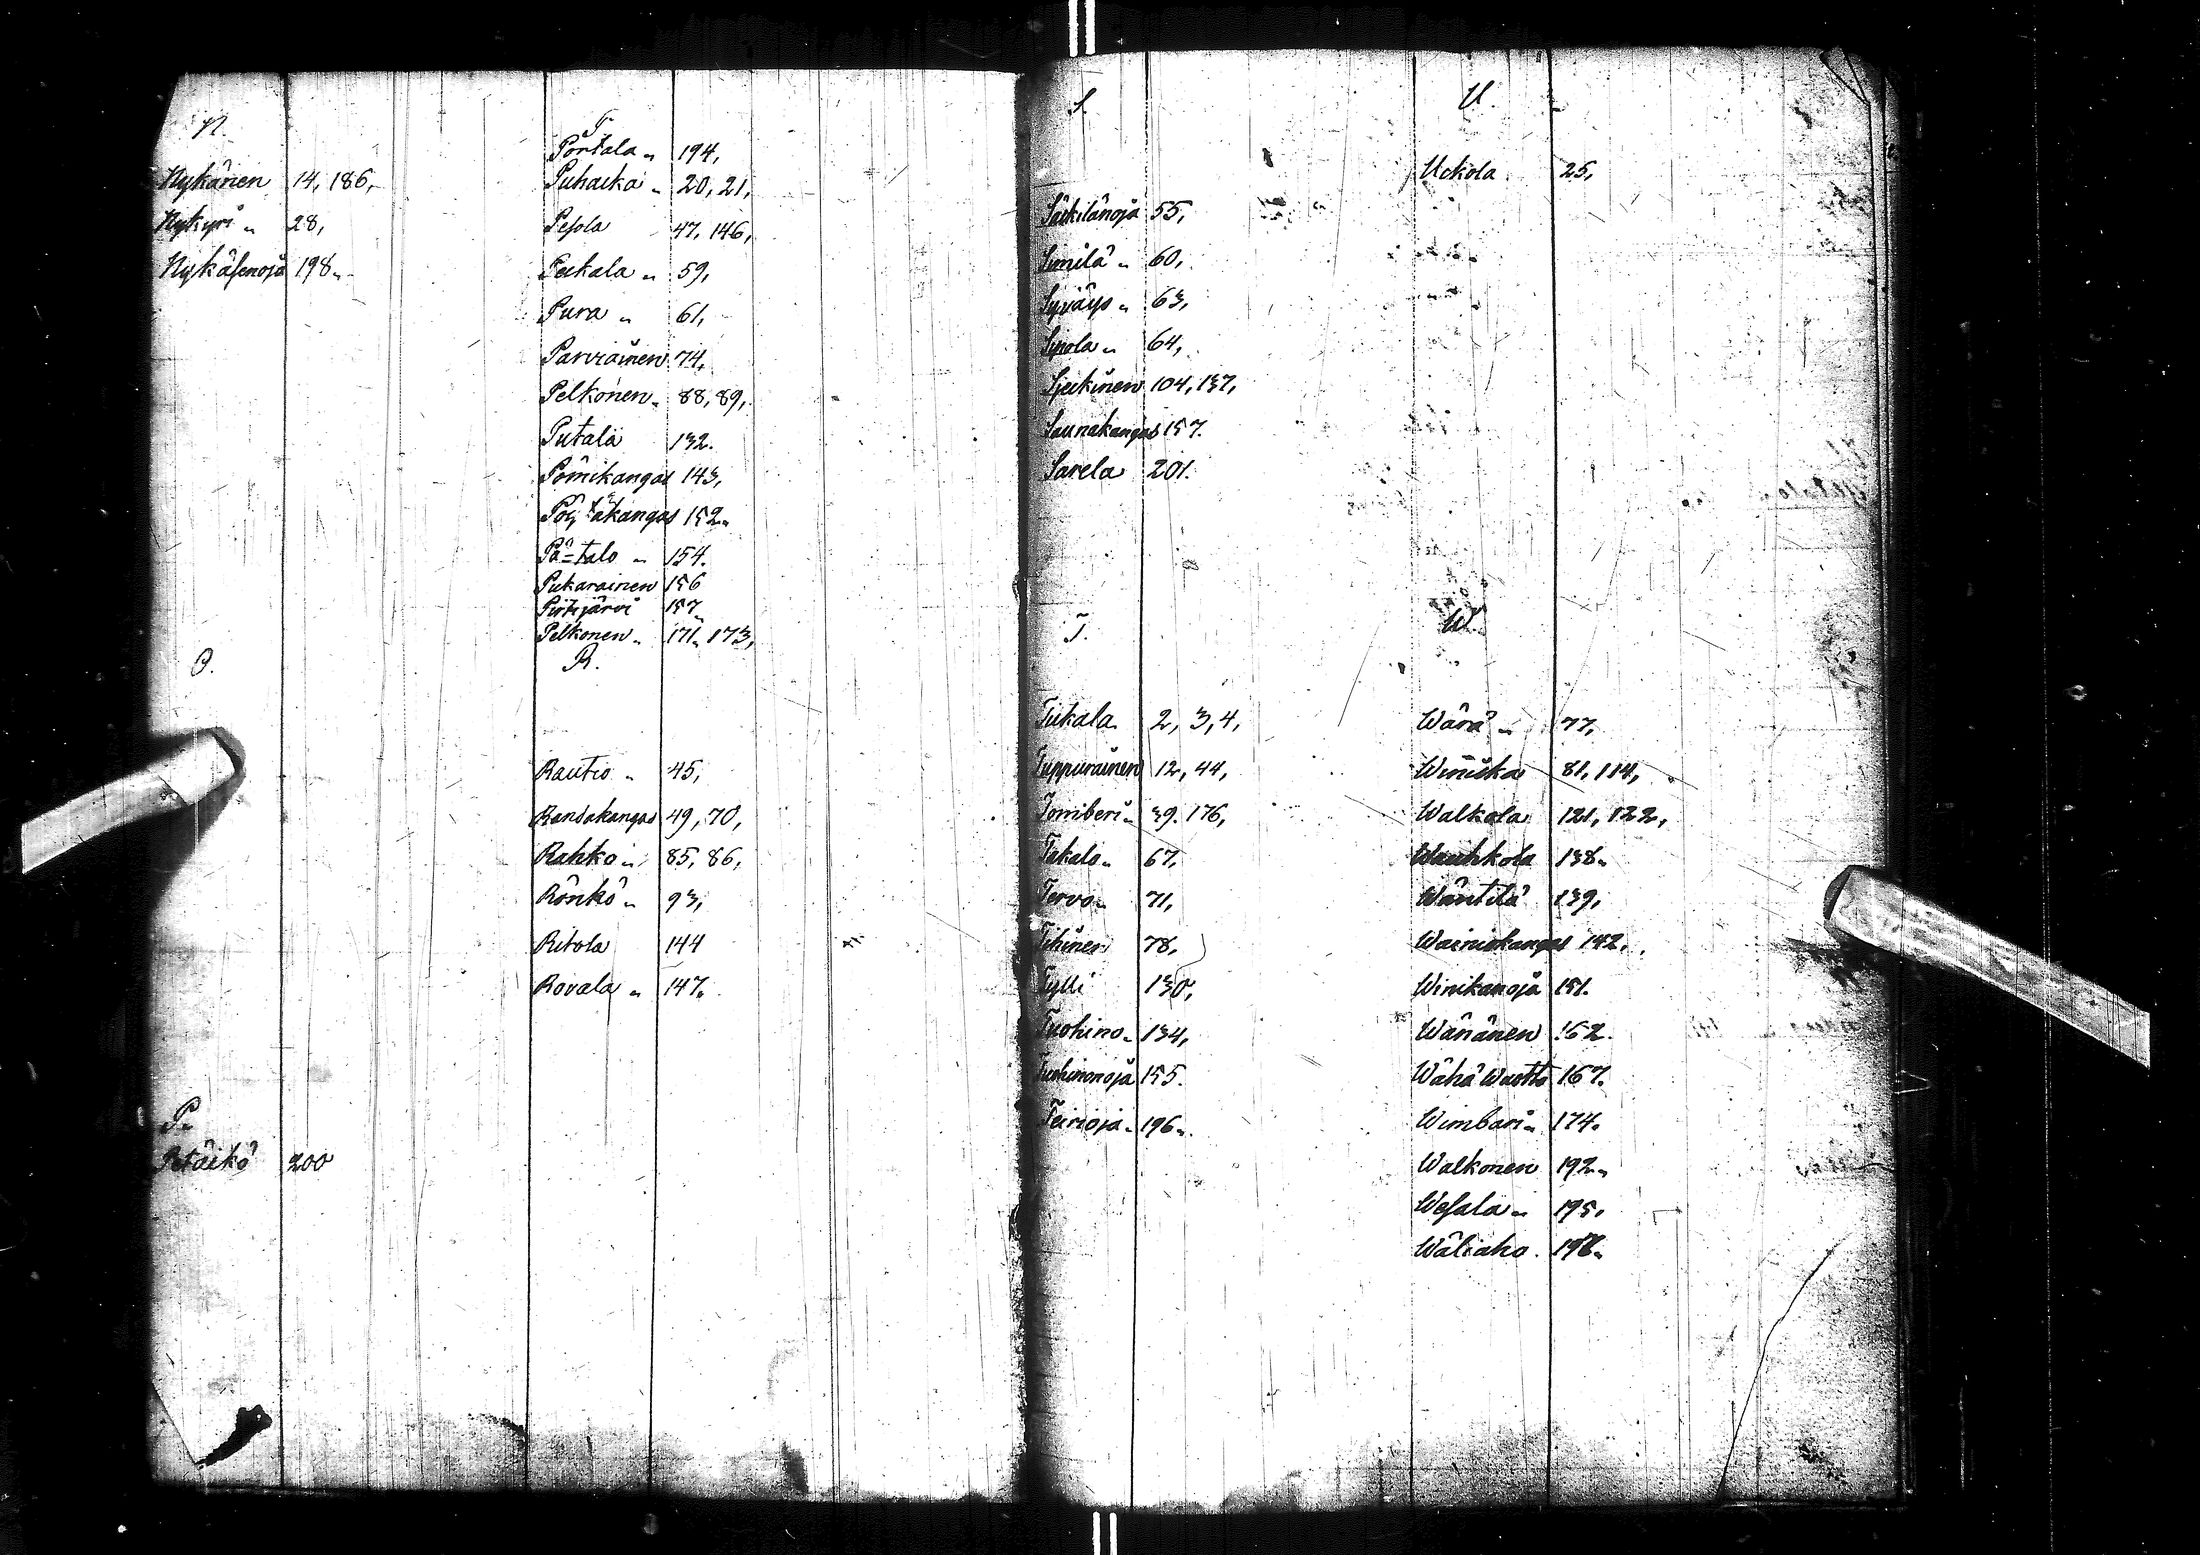 N.
Nykänen 14, 186,
Nykyri „ 28,
Nykäsenoja 198„
O.
P„
Petäikö 200
P.
Portala „ 194,
Puhakka „ 20, 21,
Pesola 47, 146,
Pekkala „ 59,
Pura „ 61,
Parviainen 74,
Pelkonen „ 88, 89,
Putala 132.
Pomikangas 143,
Pöytäkangas 152„
Pä=talo „ 154.
Pukarainen 156
Pirtijärvi 157„
Pelkonen „ 171„ 173,
R.
Rautio „ 45,
Randakangas 49, 70,
Rahko „ 85, 86,
Rönkö „ 93,
Ritola 144
Rovala „ 147„
S.
Särkilänoja 55,
Similä „ 60,
Syväys „ 63,
Sipola „ 64,
104, 137,
Saunakangas 157.
Sarela 201.
T.
Tukala 2, 3, 4,
Tuppurainen 12, 44,
Tomberi „ 39. 176,
Takalo „ 67,
Tervo „ 71,
Tihinen 78,
Tylli 130,
Tuohino „ 134,
Tuohinonoja 155.
Teirioja „ 196„
U.
Uckola 25,
W.
Wärä „ 77,
Winiska 81, 114,
Walkola 121, 122,
Wauhkola 138„
Wäntilä 139,
Wainiokangas 142,
Winikanoja 151.
Wänänen 162.
Wähä Wuotto 167.
Wimbari „ 174.
Walkonen 192„
Wesala „ 195,
Wäliaho 198„